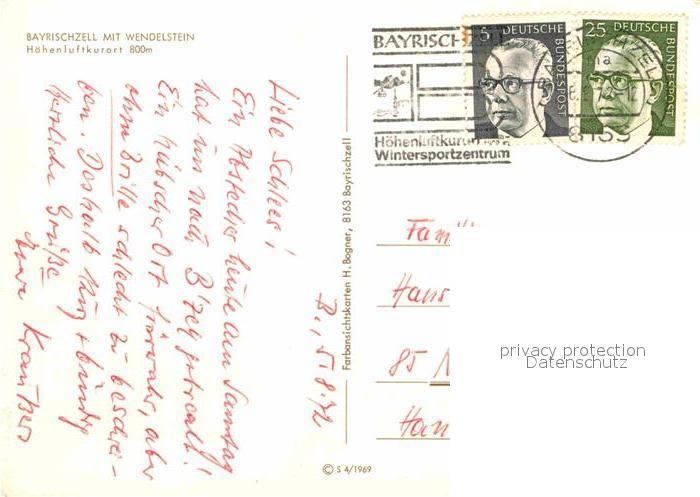 BAYRISCHZELL MIT WENDELSTEIN
Höhenluftkurort 800m
BAYRISCHZ
Höhenluftkurort
Wintersportzentrum
5
DEUTSCHE
BUNDESPOST
25
DEUTSCHE
BUNDESPOST
8163
B., 5.8.72
Liebe Schlees!
Ein Abstecher heute am Samstag
hat uns nach B'zell gebracht!
Ein hübscher Ort fürwahr, aber
ohne Brille schlecht zu beschrei-
ben. Deshalb kurz + bündig
herzliche Grüße
Ihre
Farbansichtskarten H. Bogner, 8163 Bayrischzell
© S 4/1969
Fam
Hans
85 N
Han
privacy protection
Datenschutz